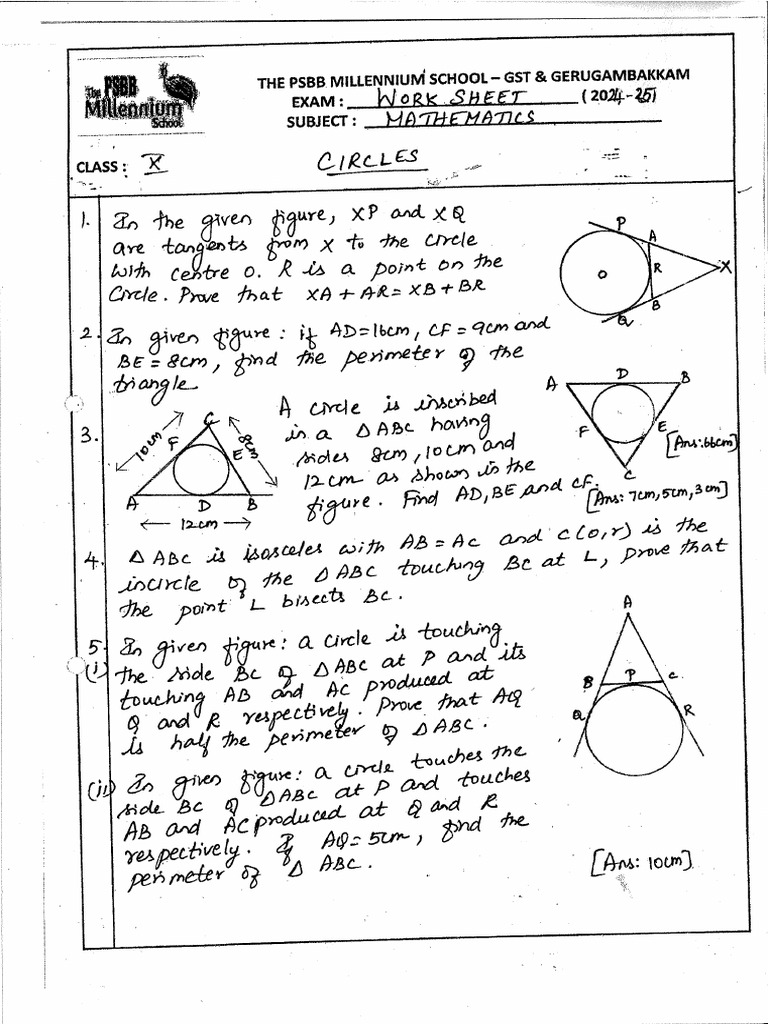 The PSBB
Millennium
School
THE PSBB MILLENNIUM SCHOOL – GST & GERUGAMBAKKAM
EXAM : WORK SHEET (2024-25)
SUBJECT : MATHEMATICS
CLASS : X
CIRCLES
1. In the given figure, XP and XQ
are tangents from X to the circle
with centre O. R is a point on the
circle. Prove that XA + AR = XB + BR
P
A
O
R
X
B
Q
2. In given figure : if AD = 16cm, CF = 9cm and
BE = 8cm, find the perimeter of the
triangle.
A
D
B
F
E
C
[Ans: 66cm]
3. A circle is inscribed
in a △ABC having
sides 8cm, 10cm and
12cm as shown in the
figure. Find AD, BE and CF.
[Ans: 7cm, 5cm, 3cm]
C
10cm
F
8cm
E
A
D
B
12cm
4. △ABC is isosceles with AB = AC and C(O,r) is the
incircle of the △ABC touching BC at L, prove that
the point L bisects BC.
5. In given figure: a circle is touching
(i) the side BC of △ABC at P and its
touching AB and AC produced at
Q and R respectively. Prove that AQ
is half the perimeter of △ABC.
A
B
P
C
Q
R
(ii) In given figure: a circle touches the
side BC of △ABC at P and touches
AB and AC produced at Q and R
respectively. If AQ = 5cm, find the
perimeter of △ ABC.
[Ans: 10cm]